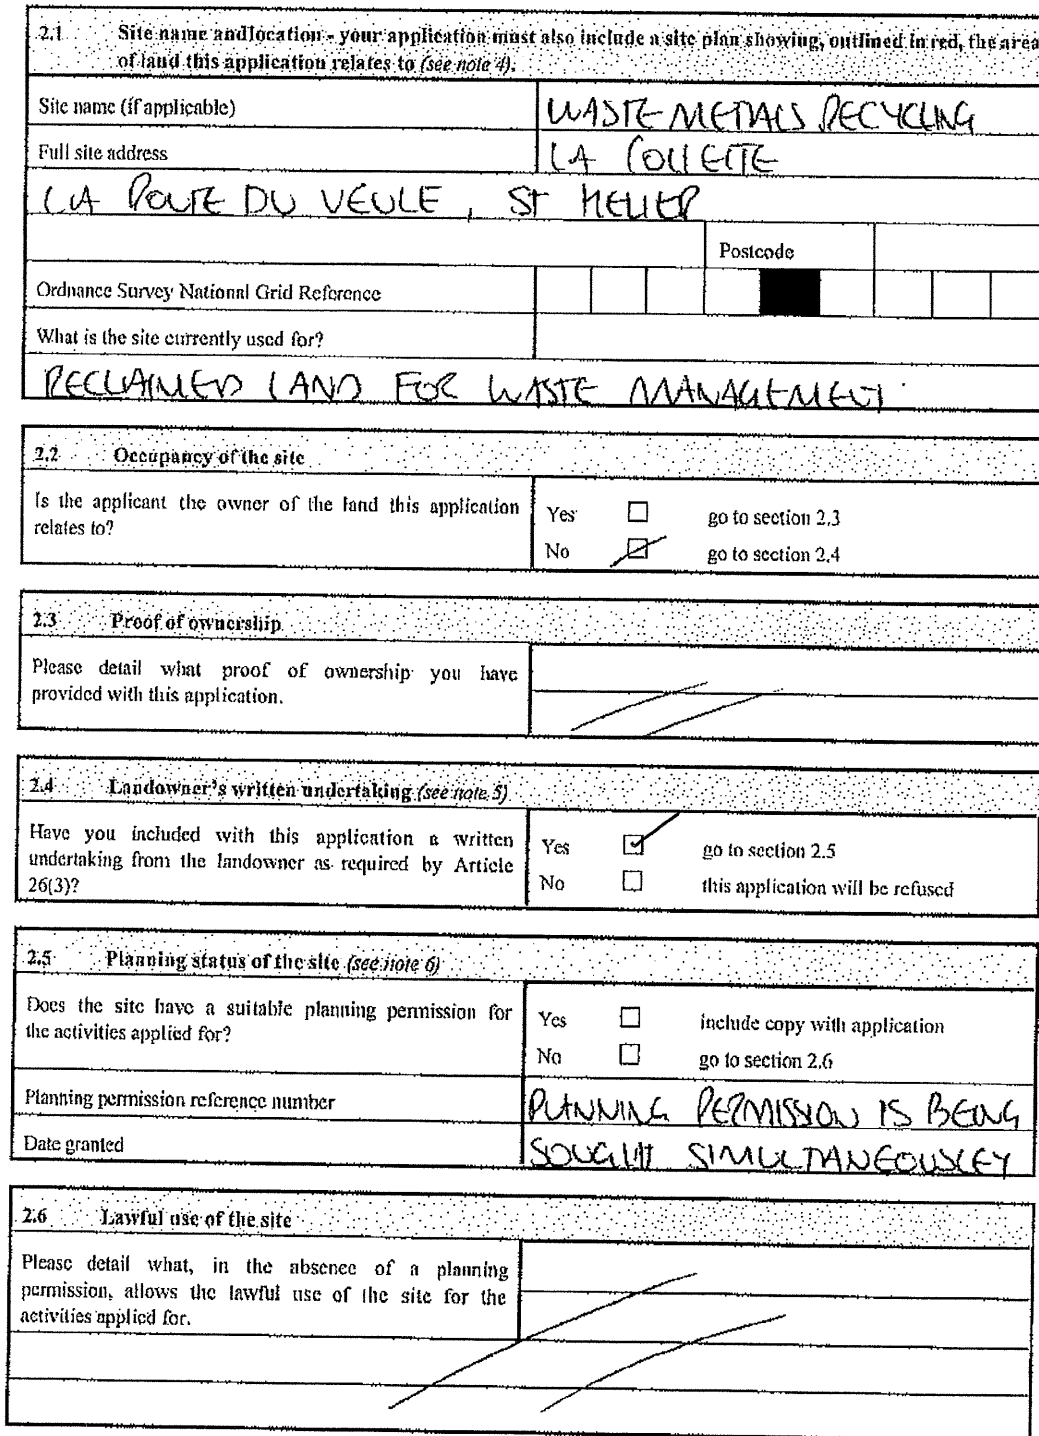 2.1 Site name and location - your application must also include a site plan showing, outlined in red, the area
of land this application relates to (see note 4).
Site name (if applicable) WASTE METALS RECYCLING
Full site address LA COLLETTE
LA ROUTE DU VEULE, ST HELIER
Postcode
Ordnance Survey National Grid Reference
What is the site currently used for?
RECLAIMED LAND FOR WASTE MANAGEMENT.
2.2 Occupancy of the site
Is the applicant the owner of the land this application
relates to?
Yes ☐ go to section 2.3
No ☑ go to section 2.4
2.3 Proof of ownership
Please detail what proof of ownership you have
provided with this application.
2.4 Landowner's written undertaking (see note 5)
Have you included with this application a written
undertaking from the landowner as required by Article
26(3)?
Yes ☑ go to section 2.5
No ☐ this application will be refused
2.5 Planning status of the site (see note 6)
Does the site have a suitable planning permission for
the activities applied for?
Yes ☐ include copy with application
No ☐ go to section 2.6
Planning permission reference number PLANNING PERMISSION IS BEING
Date granted SOUGHT SIMULTANEOUSLEY
2.6 Lawful use of the site
Please detail what, in the absence of a planning
permission, allows the lawful use of the site for the
activities applied for.